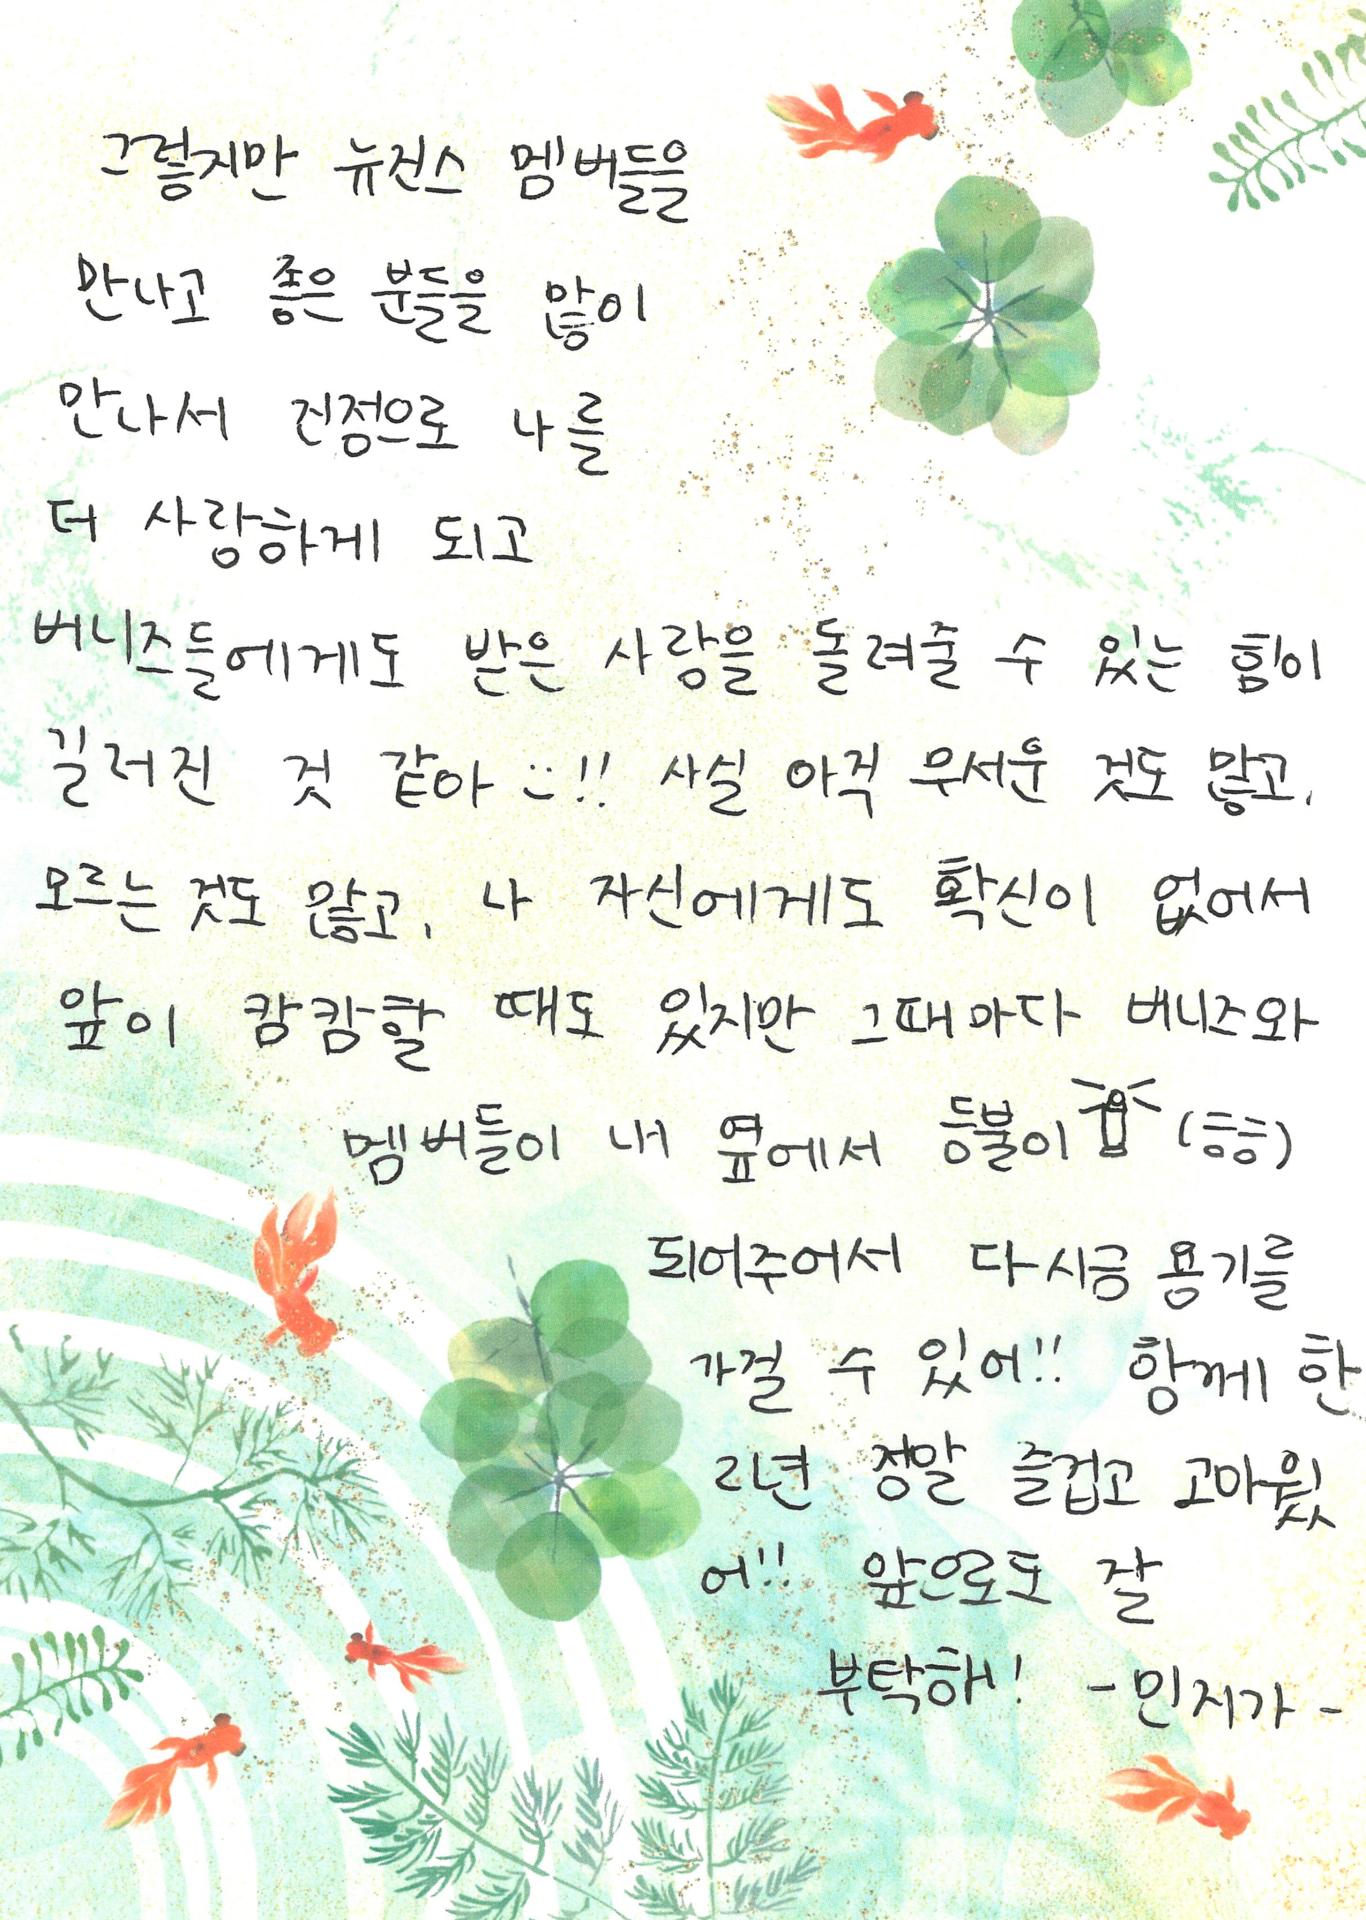 그렇지만 뉴진스 멤버들을
만나고 좋은 분들을 많이
만나서 진정으로 나를
더 사랑하게 되고
버니즈들에게도 받은 사랑을 돌려줄 수 있는 힘이
길러진 것 같아 :)!! 사실 아직 무서운 것도 많고,
모르는 것도 많고, 나 자신에게도 확신이 없어서
앞이 캄캄할 때도 있지만 그때마다 버니즈와
멤버들이 내 옆에서 등불이 (흠흠)
되어주어서 다시금 용기를
가질 수 있어!! 함께 한
2년 정말 즐겁고 고마웠
어!! 앞으로도 잘
부탁해! -민지가-